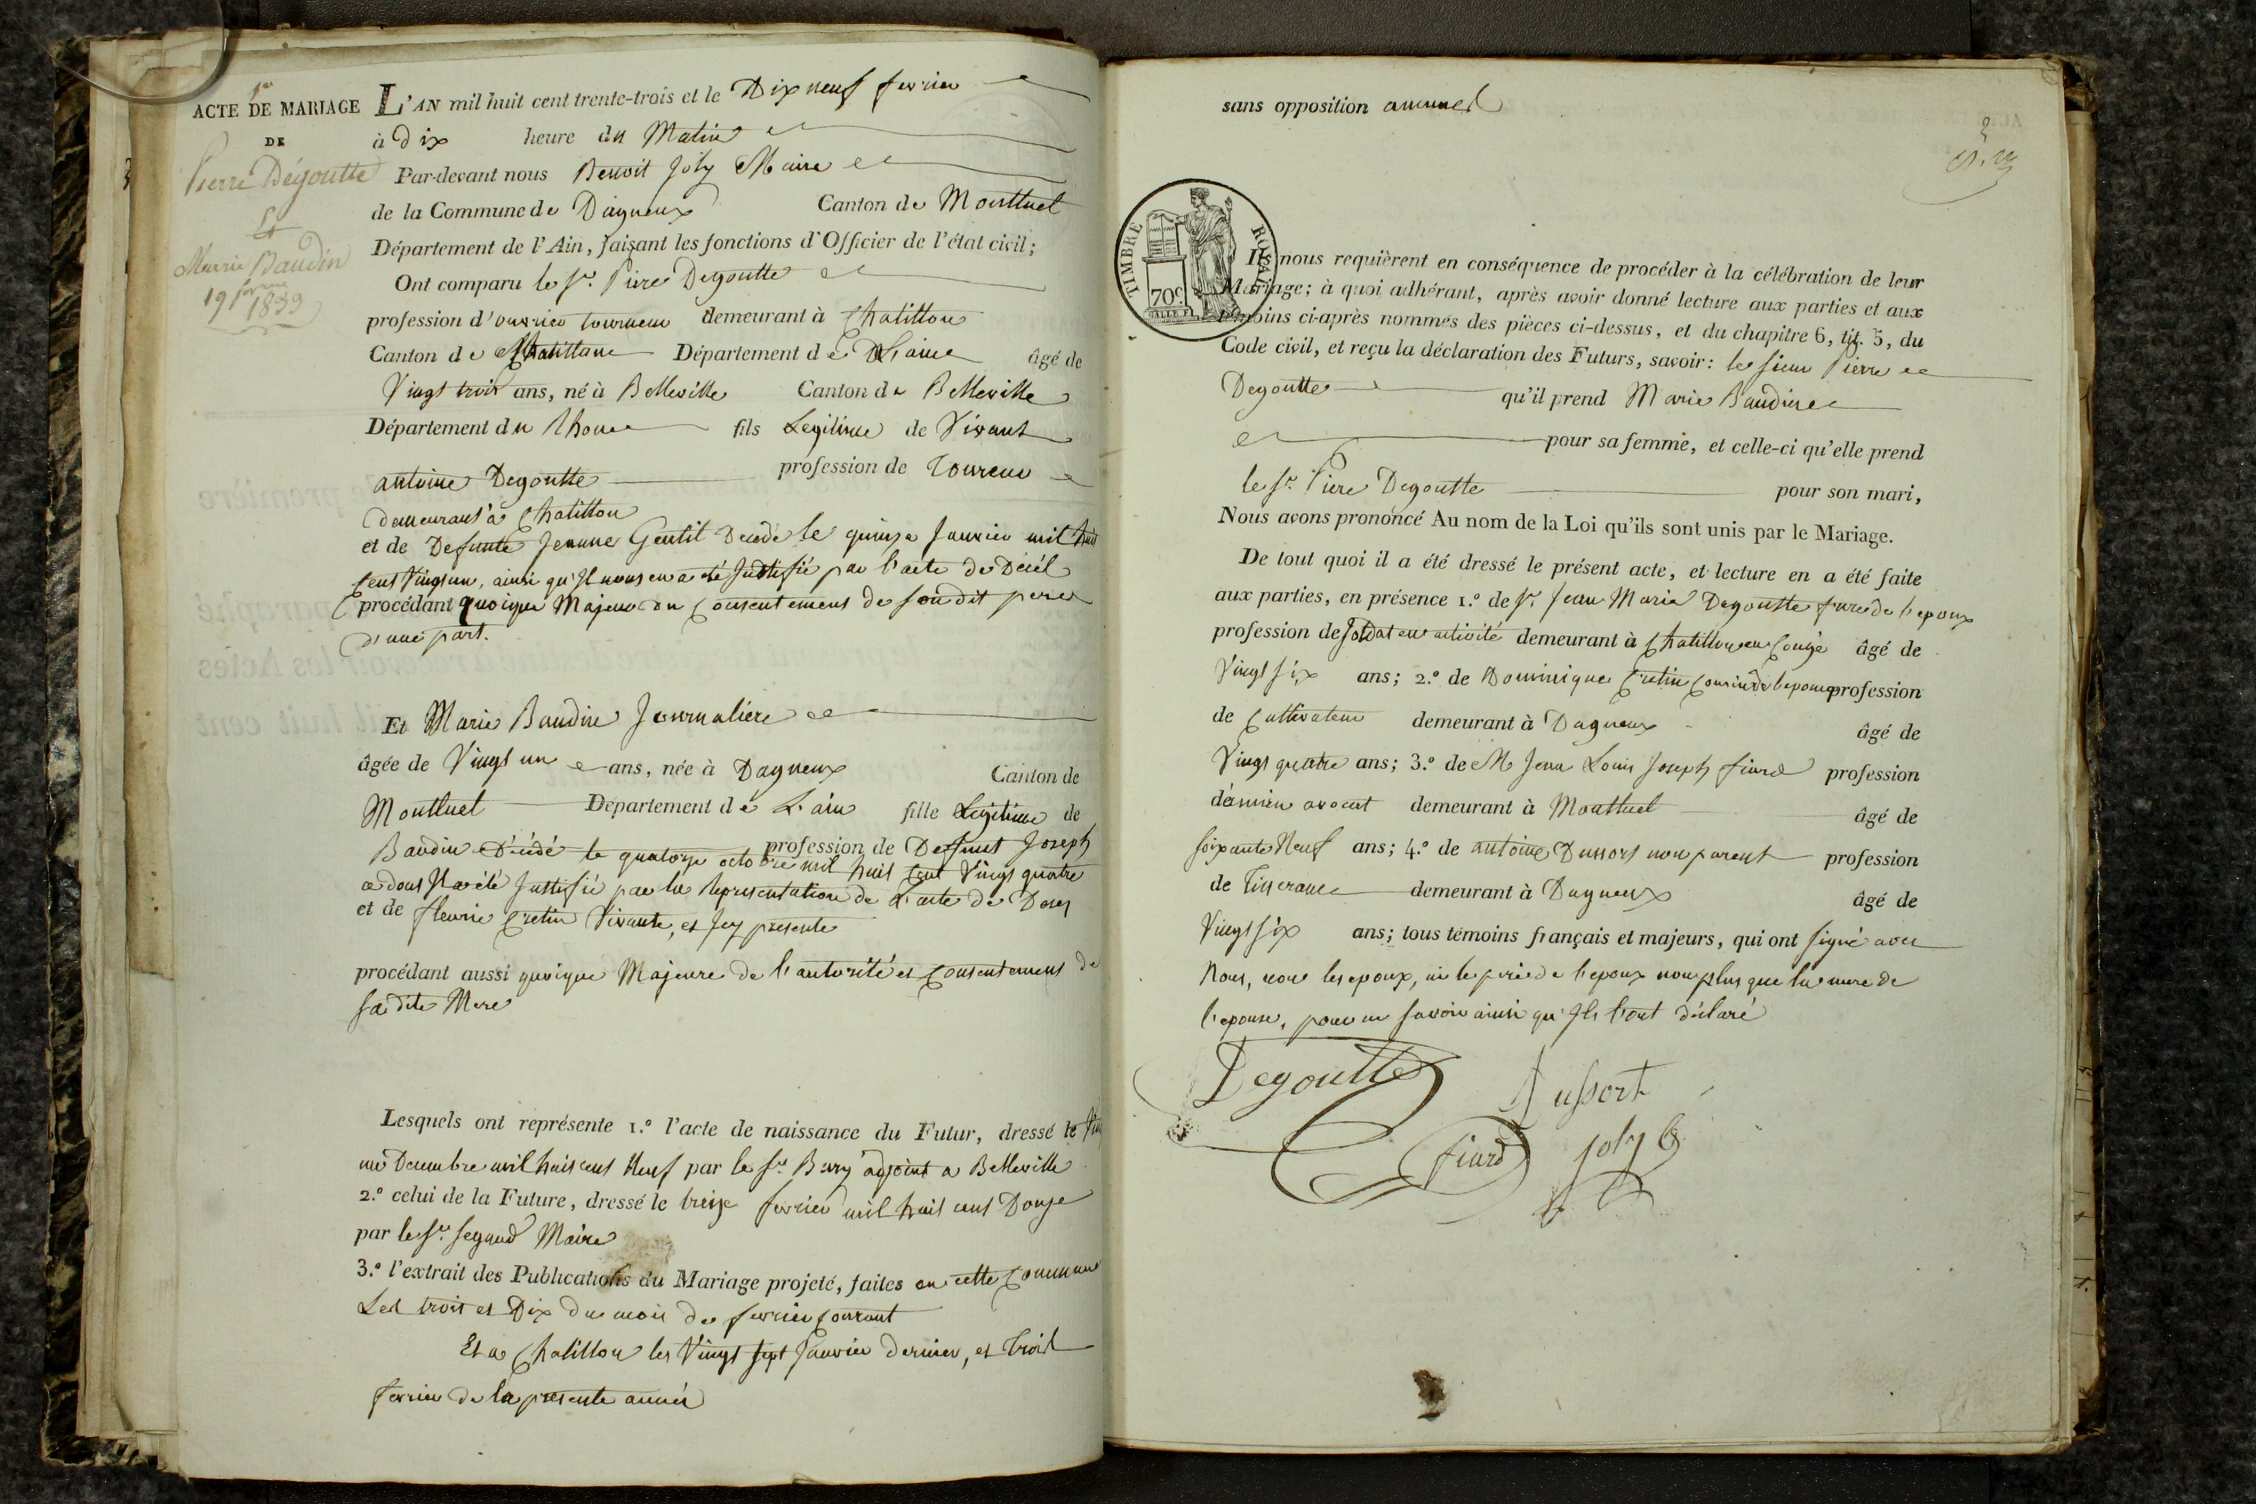 1er
ACTE DE MARIAGE
DE
Pierre Dégoutte
Et
Marie Baudin
19 fevrier
1833
L'AN mil huit cent trente-trois et le Dix neuf fevrier
à Dix heure du Matin
Par-devant nous Benoit Joly Maire
de la Commune de Dagneux Canton de Montluel
Département de l'Ain, faisant les fonctions d'Officier de l'état civil;
Ont comparu le Sr. Piere Degoutte
profession d'ouvrier tourneur demeurant à Chatillon
Canton de Chatillon Département de L'aine âgé de
Vingt trois ans, né à Belleville Canton de Belleville
Département du Rhone fils Legitime de Vivant
antoine Degoutte profession de Toureur
demeurant à Chatillon
et de Defunte Jeanne Gentil Decedé le quinze Janvier mil huit
Cent Vingt un, ainsi qu'Il nous en a été Justifié par l'acte de Décél
procédant quoique Majeur du Consentement de son dit pere
d'une part.
Et Marie Baudin Journaliere
âgée de Vingt un ans, née à Dagneux Canton de
Montluel Département de L'ain fille Legitime de
Baudin Décédé le quatorze octobre mil huit Cent Vingt quatre profession de Defunt Joseph
ce dont Il a été Justifié par la Representation de L'acte de Deces
et de fleurie Cretin Vivante, et Icy presente
procédant aussi quoique Majeure de l'autorité et Consentement de
sa dite Mere
Lesquels ont représente 1.º l'acte de naissance du Futur, dressé le
un Decembre mil huit cent Neuf par le Sr. Bury adjoint a Belleville
2.º celui de la Future, dressé le treize fevrier mil huit cent Douze
par le Sr. Segaud Maire
3.º l'extrait des Publications du Mariage projeté, faites en cette Commune
Les trois et Dix du mois de fevrier Courant
Et a Chatillon les Vingt Sept Janvier dernier, et Trois
fevrier de la presente année
sans opposition aucune
TIMBRE ROYAL
70c
Ils nous requièrent en conséquence de procéder à la célébration de leur
Mariage; à quoi adhérant, après avoir donné lecture aux parties et aux
témoins ci-après nommés des pièces ci-dessus, et du chapitre 6, tit. 5, du
Code civil, et reçu la déclaration des Futurs, savoir: le sieur Pierre
Degoutte qu'il prend Marie Baudin
pour sa femme, et celle-ci qu'elle prend
le Sr. Piere Degoutte pour son mari,
Nous avons prononcé Au nom de la Loi qu'ils sont unis par le Mariage.
De tout quoi il a été dressé le présent acte, et lecture en a été faite
aux parties, en présence 1.º de Sr. Jean Marie Degoutte frere de l'epoux
profession de Soldat en activité demeurant à Chatillon en Congé âgé de
Vingt Six ans; 2.º de Dominique Cretin Cousin de l'epouse profession
de Cultivateur demeurant à Dagneux âgé de
Vingt quatre ans; 3.º de M Jean Louis Joseph fiard profession
d'ancien avocat demeurant à Montluel âgé de
soixante Neuf ans; 4.º de antoine Dussort non parent profession
de Tisserant demeurant à Dagneux âgé de
Vingt Six ans; tous témoins français et majeurs, qui ont signé avec
Nous, non les epoux, ni le père de l'epoux non plus que la mere de
l'epouse, pour ne savoir ainsi qu'Ils l'ont déclaré
Degoutte
Dussort
fiard
Joly B